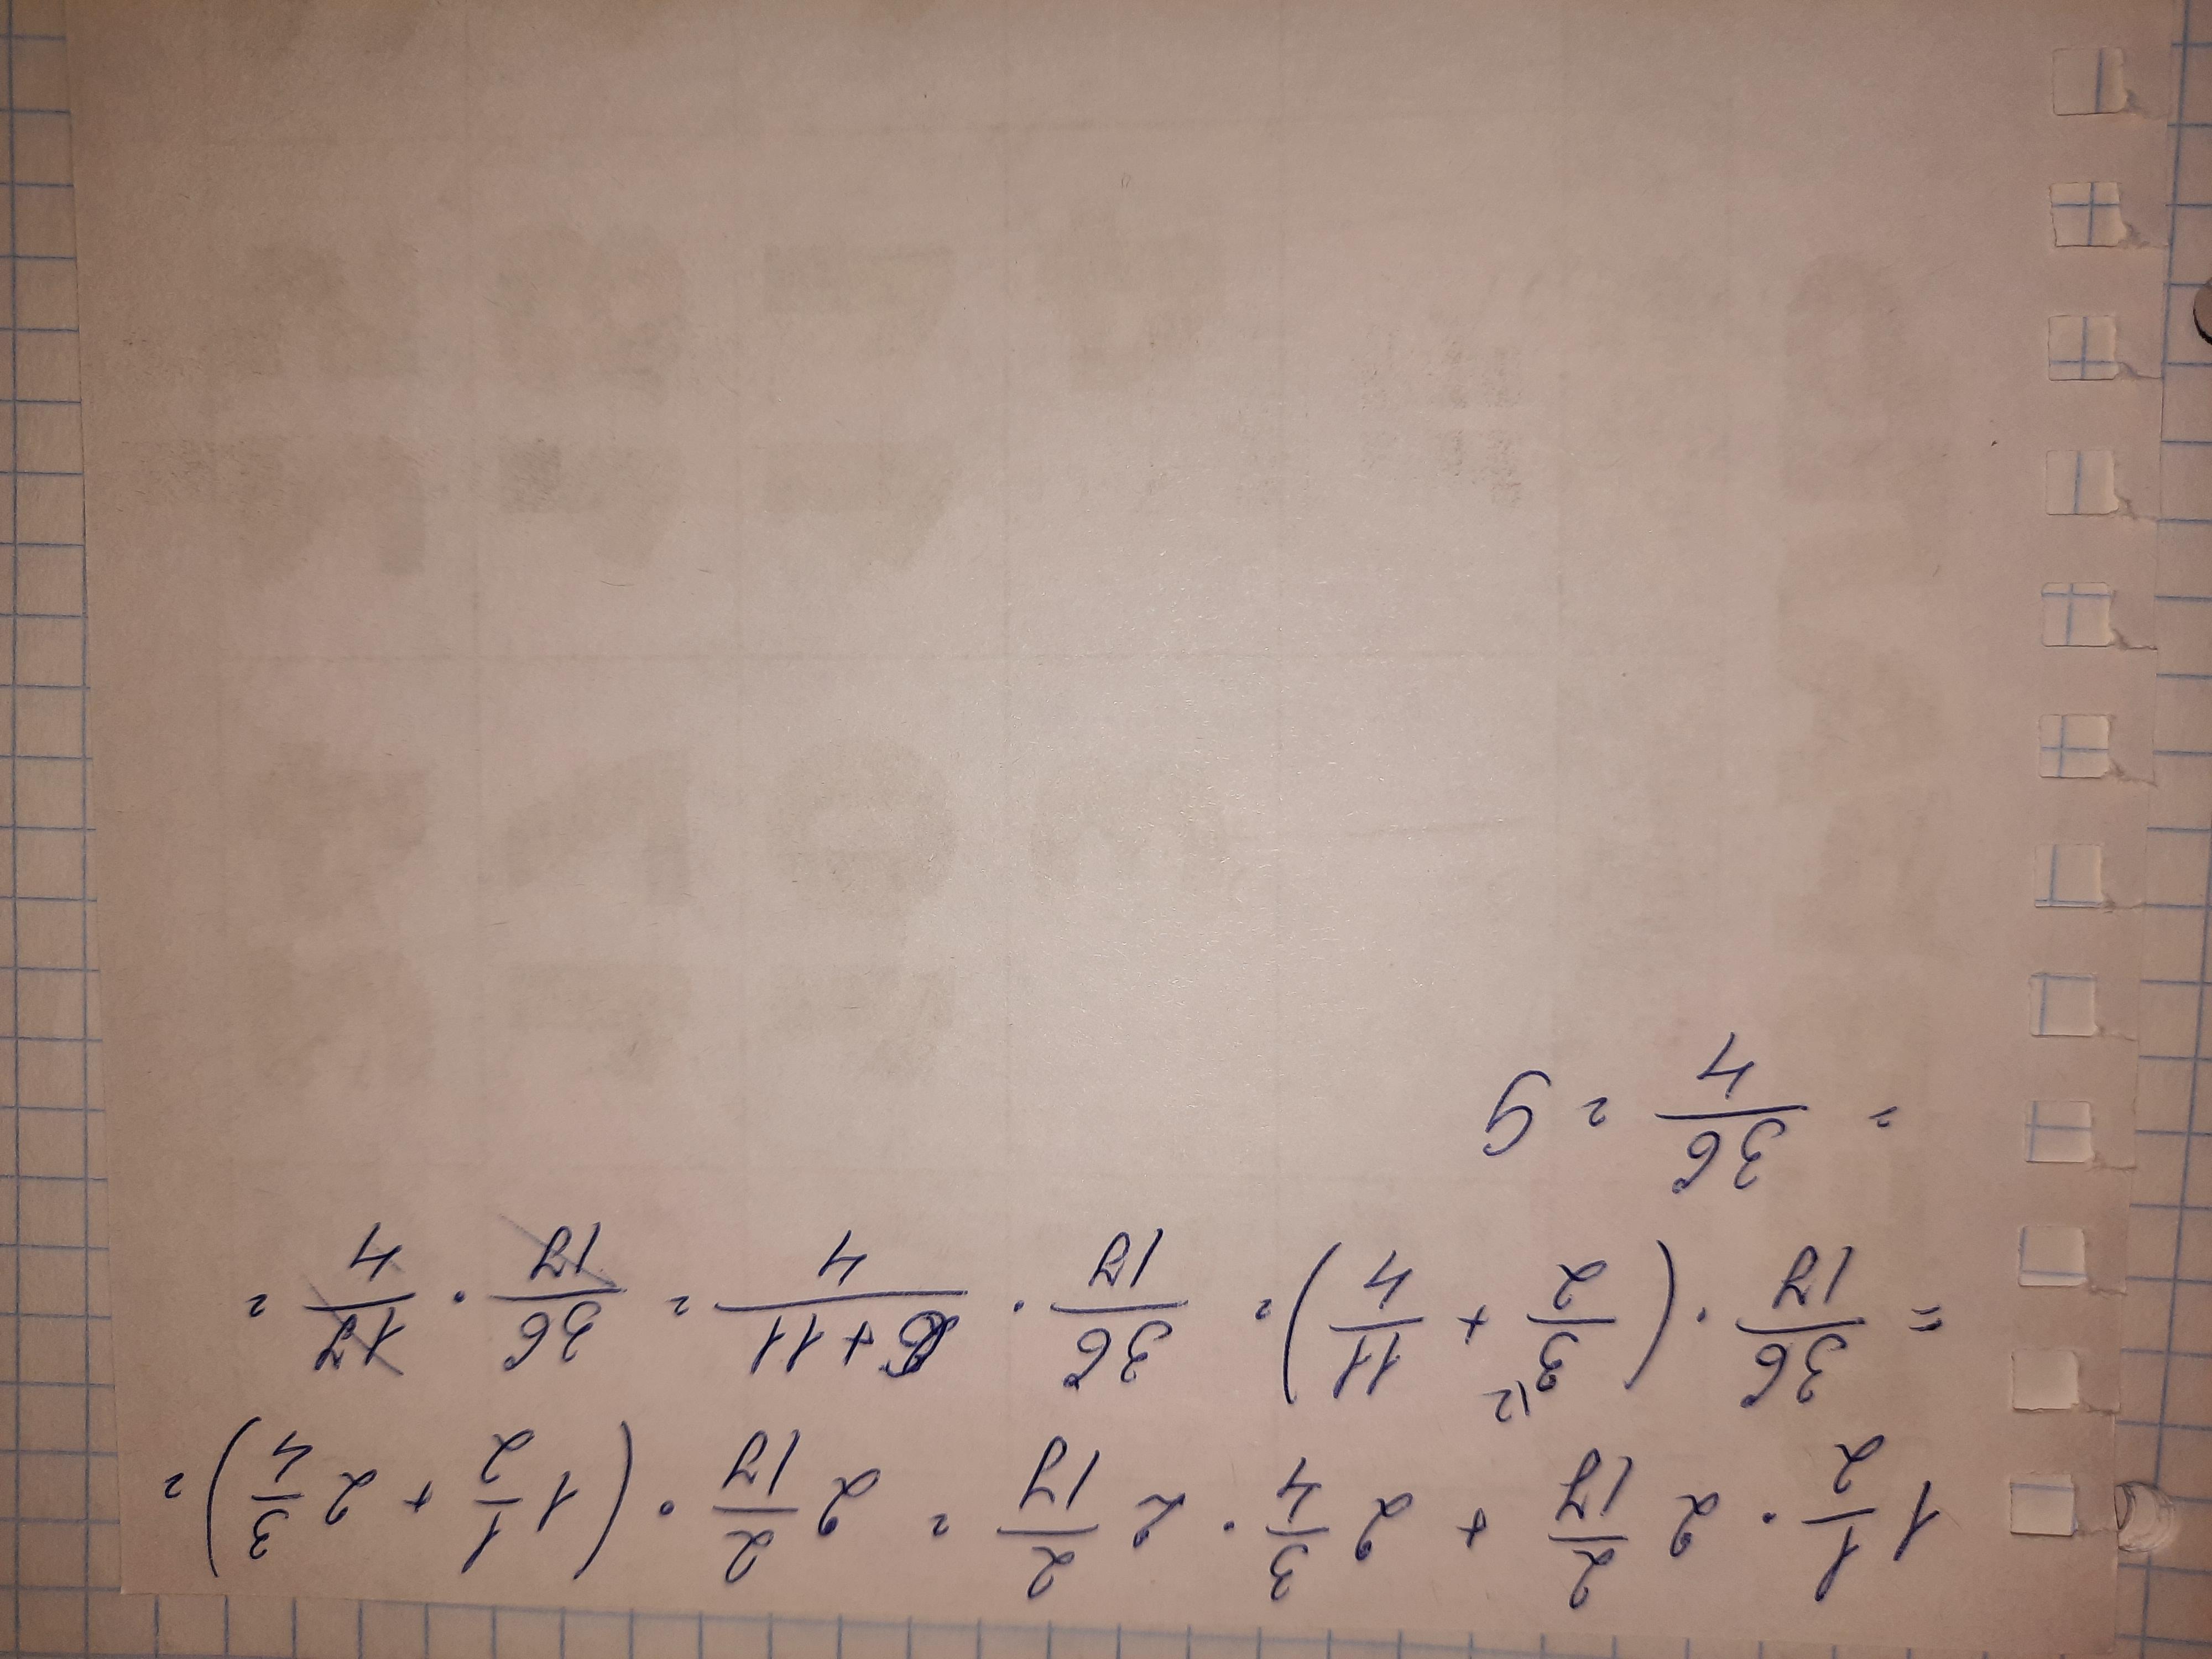 1 1/2 · 2 2/17 + 2 3/4 · 2 2/17 = 2 2/17 · (1 1/2 + 2 3/4) =
= 36/17 · (3\2/2 + 11/4) = 36/17 · 6+11/4 = 36/17 · 17/4 =
= 36/4 = 9